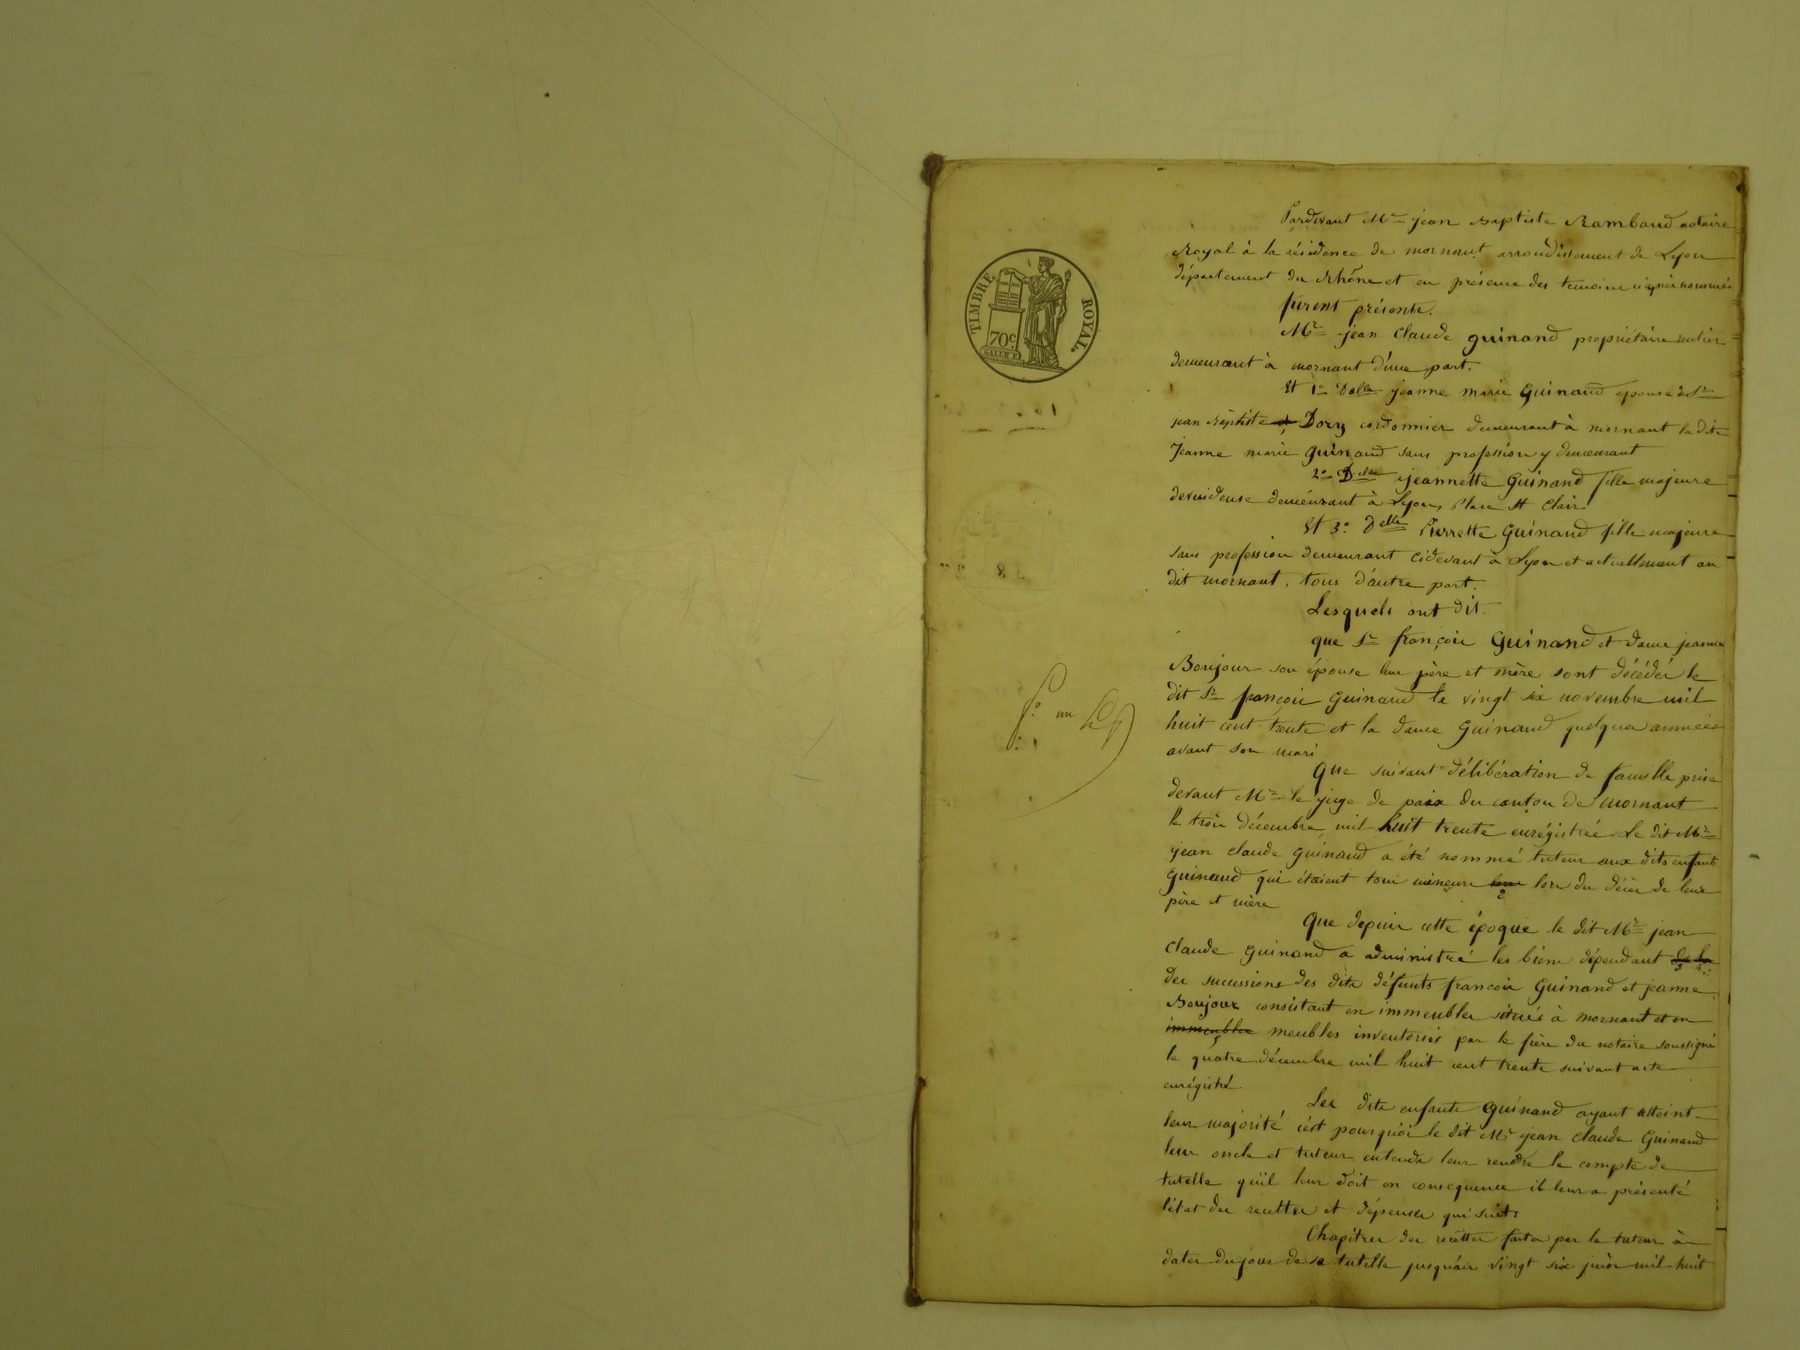 TIMBRE ROYAL.
70c.
Pardevant Me jean Baptiste Rambaud notaire
Royal à la résidence de mornant arrondissement de Lyon
département du Rhône et en présence des temoins ci après nommés
furent présents.
Mr jean Claude guinand propriétaire rentier
demeurant à mornant d'une part.
Et 1o Dalle jeanne marie Guinand épouse de Sr
jean Baptiste Dory cordonnier demeurant à mornant la dite
Jeanne marie guinand sans profession y demeurant
2o Dlle jeannette Guinand fille majeure
devideuse demeurant à Lyon, Place St Clair
Et 3o Delle Pierrette Guinand fille majeure
sans profession demeurant cidevant à Lyon et actuellement au
dit mornant, tous d'autre part.
Lesquels ont dit.
que Sr françois Guinand et dame jeanne
Bonjour son épouse leur père et mère sont décédés le
dit Sr françois Guinand le vingt six novembre mil
huit cent trente et la dame Guinand quelques années
avant son mari
Que suivant délibération de famille prise
devant Mr le juge de paix du canton de mornant
le trois décembre mil huit trente enrégistrée le dit Mr
jean claude guinand a été nommé tuteur aux dits enfants
Guinand qui étaient tous mineurs lors du décès de leurs
père et mère
Que depuis cette époque le dit Mr jean
Claude Guinand a administré les biens dépendant de la
des successions des dits défunts francois Guinand et jeanne
Bonjour consistant en immeubles situés à mornant et en
immeubles meubles inventoriés par le frère du notaire soussigné
le quatre décembre mil huit cent trente suivant acte
enrégistré
Les dits enfants Guinand ayant atteint
leur majorité c'est pourquoi le dit Mr jean claude Guinand
leur oncle et tuteur entends leur rendre le compte de
tutelle qu'il leur doit en consequence il leur a présenté
l'état des recettes et dépenses qui suit:
Chapitres des recettes faites par le tuteur à
dater du jour de sa tutelle jusqu'au vingt six juin mil huit
fo un